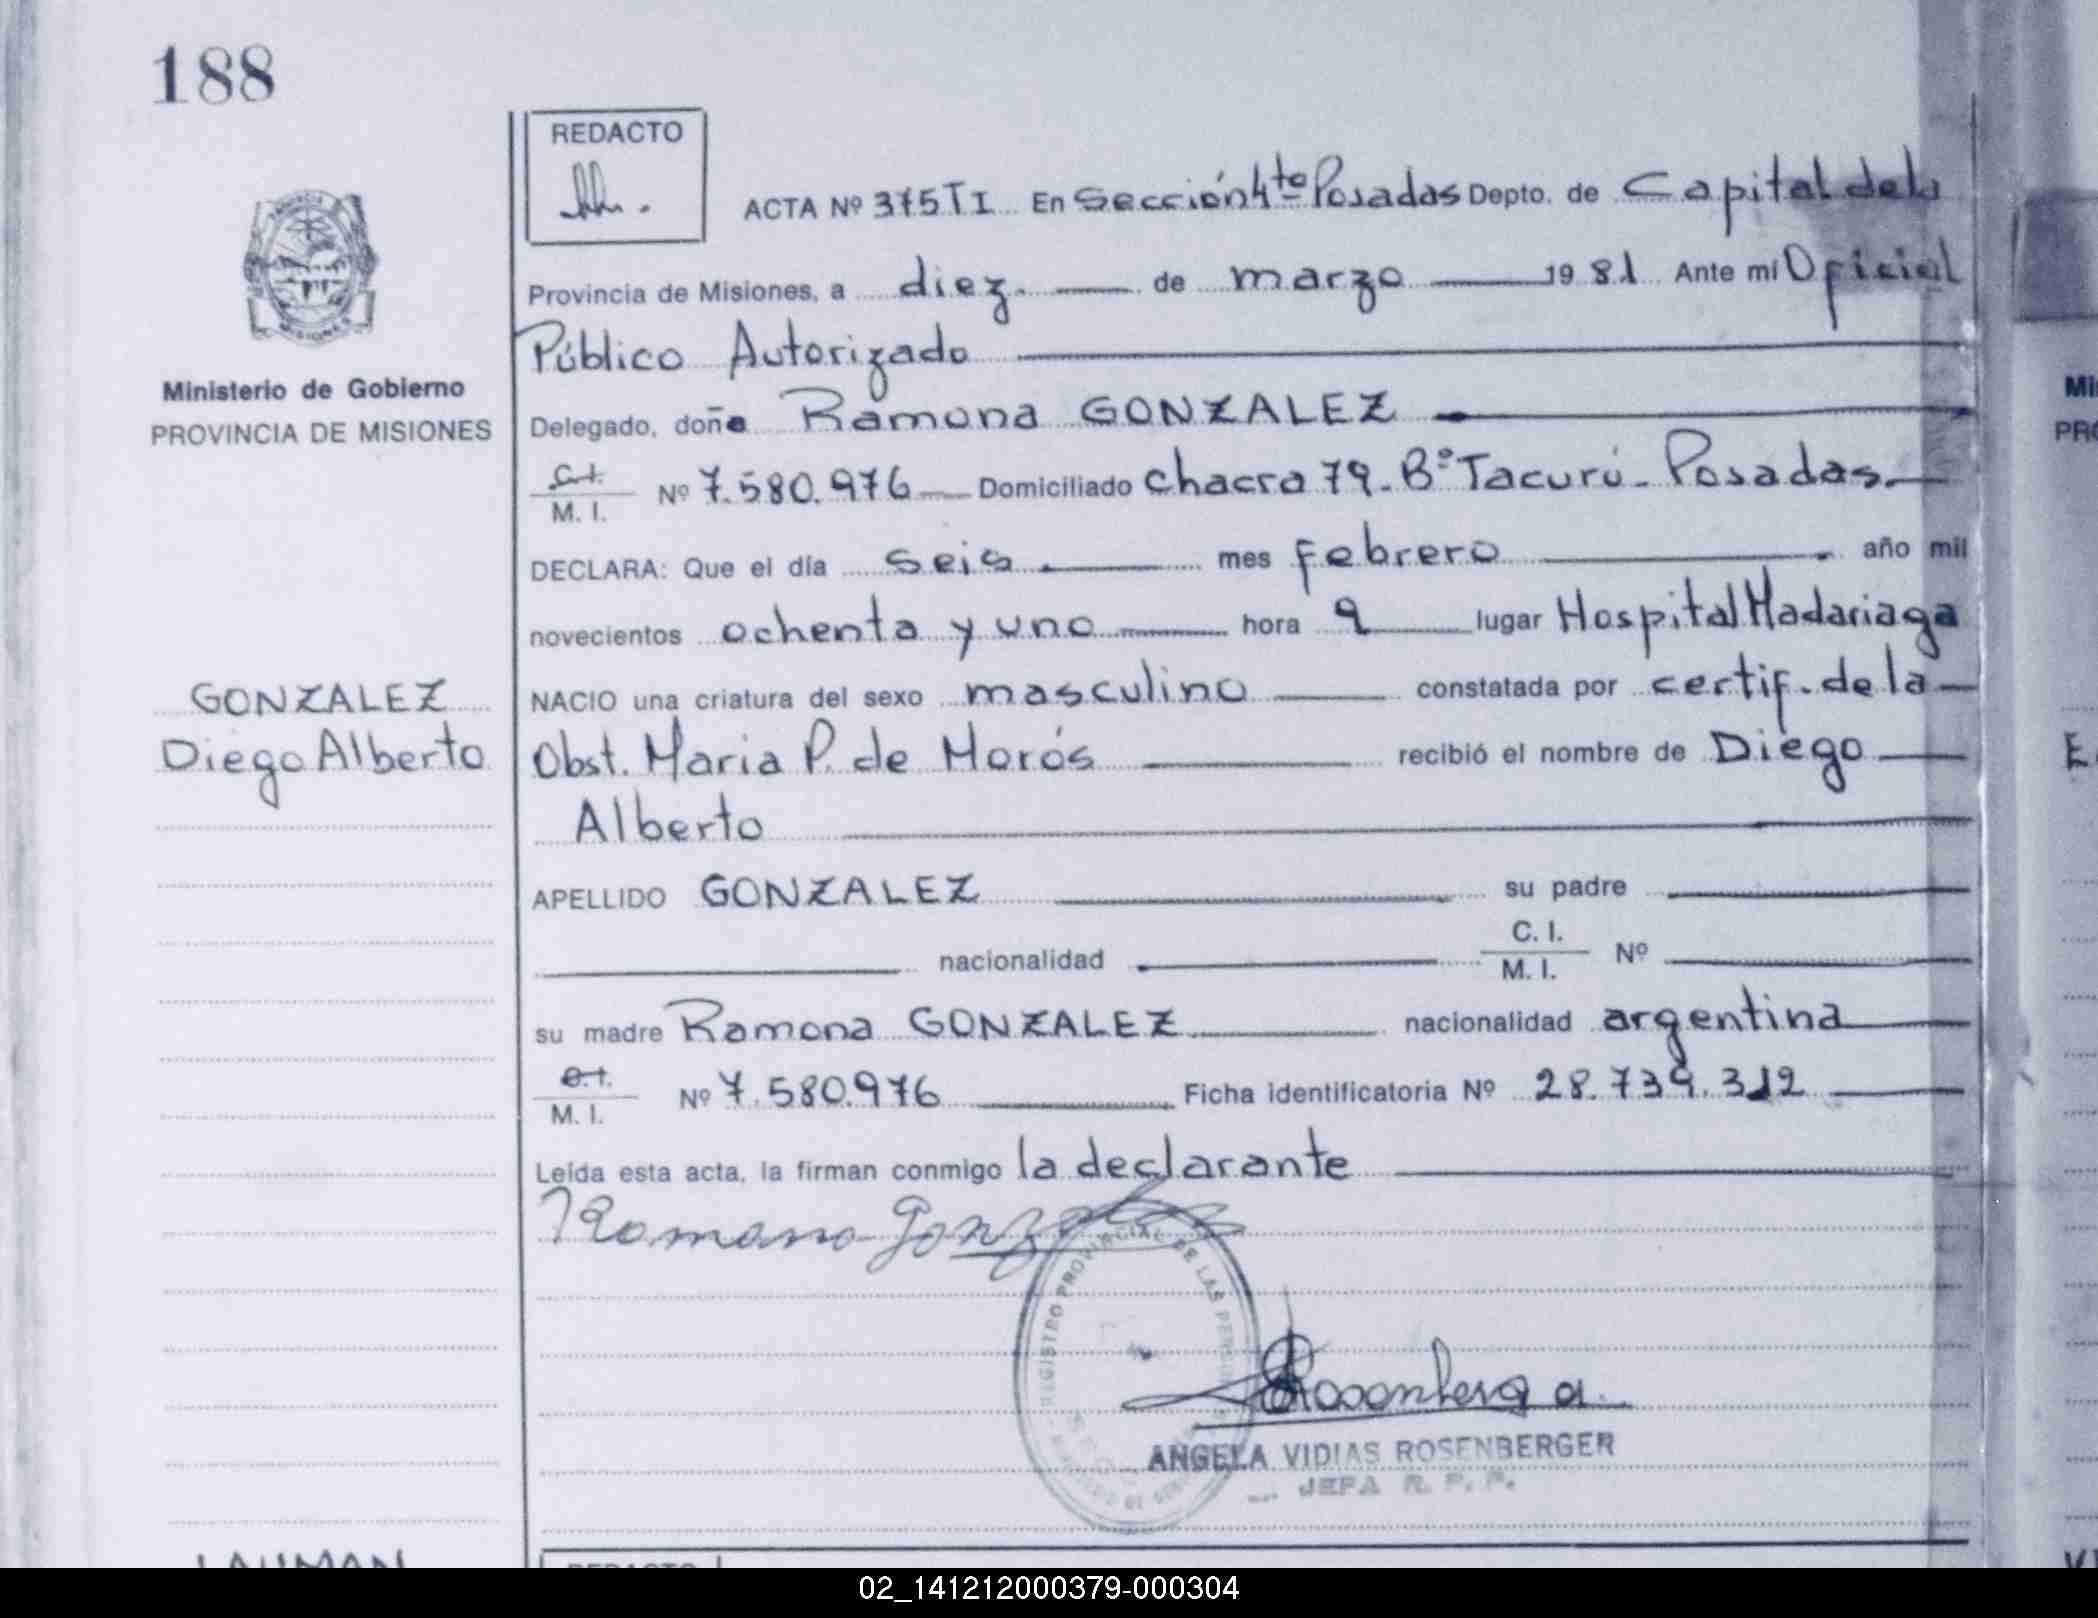 188
REDACTO
ACTA Nº 375 T I En Sección 4to Posadas Depto. de Capital de la
Provincia de Misiones, a diez de marzo 1981 Ante mí Oficial
Público Autorizado
Ministerio de Gobierno
PROVINCIA DE MISIONES
Delegado, doña Ramona GONZALEZ
C.I.
M. I.
Nº 7.580.976 Domiciliado chacra 79 - Bº Tacurú - Posadas.
DECLARA: Que el día seis mes febrero año mil
novecientos ochenta y uno hora 9 lugar Hospital Madariaga
GONZALEZ
Diego Alberto
NACIO una criatura del sexo masculino constatada por certif. de la
Obst. Maria P. de Morós recibió el nombre de Diego
Alberto
APELLIDO GONZALEZ su padre
nacionalidad C. I.
M. I.
Nº
su madre Ramona GONZALEZ nacionalidad argentina
C.I.
M. I.
Nº 7.580.976 Ficha identificatoria Nº 28.739.312
Leída esta acta, la firman conmigo la declarante
Ramona Gonzalez
REGISTRO PROVINCIAL DE LAS PERSONAS
Rosenberg a.
ANGELA VIDIAS ROSENBERGER
JEFA R. P. P.
LAUMAN
REDACTO
Mi
PRO
E
02_141212000379-000304